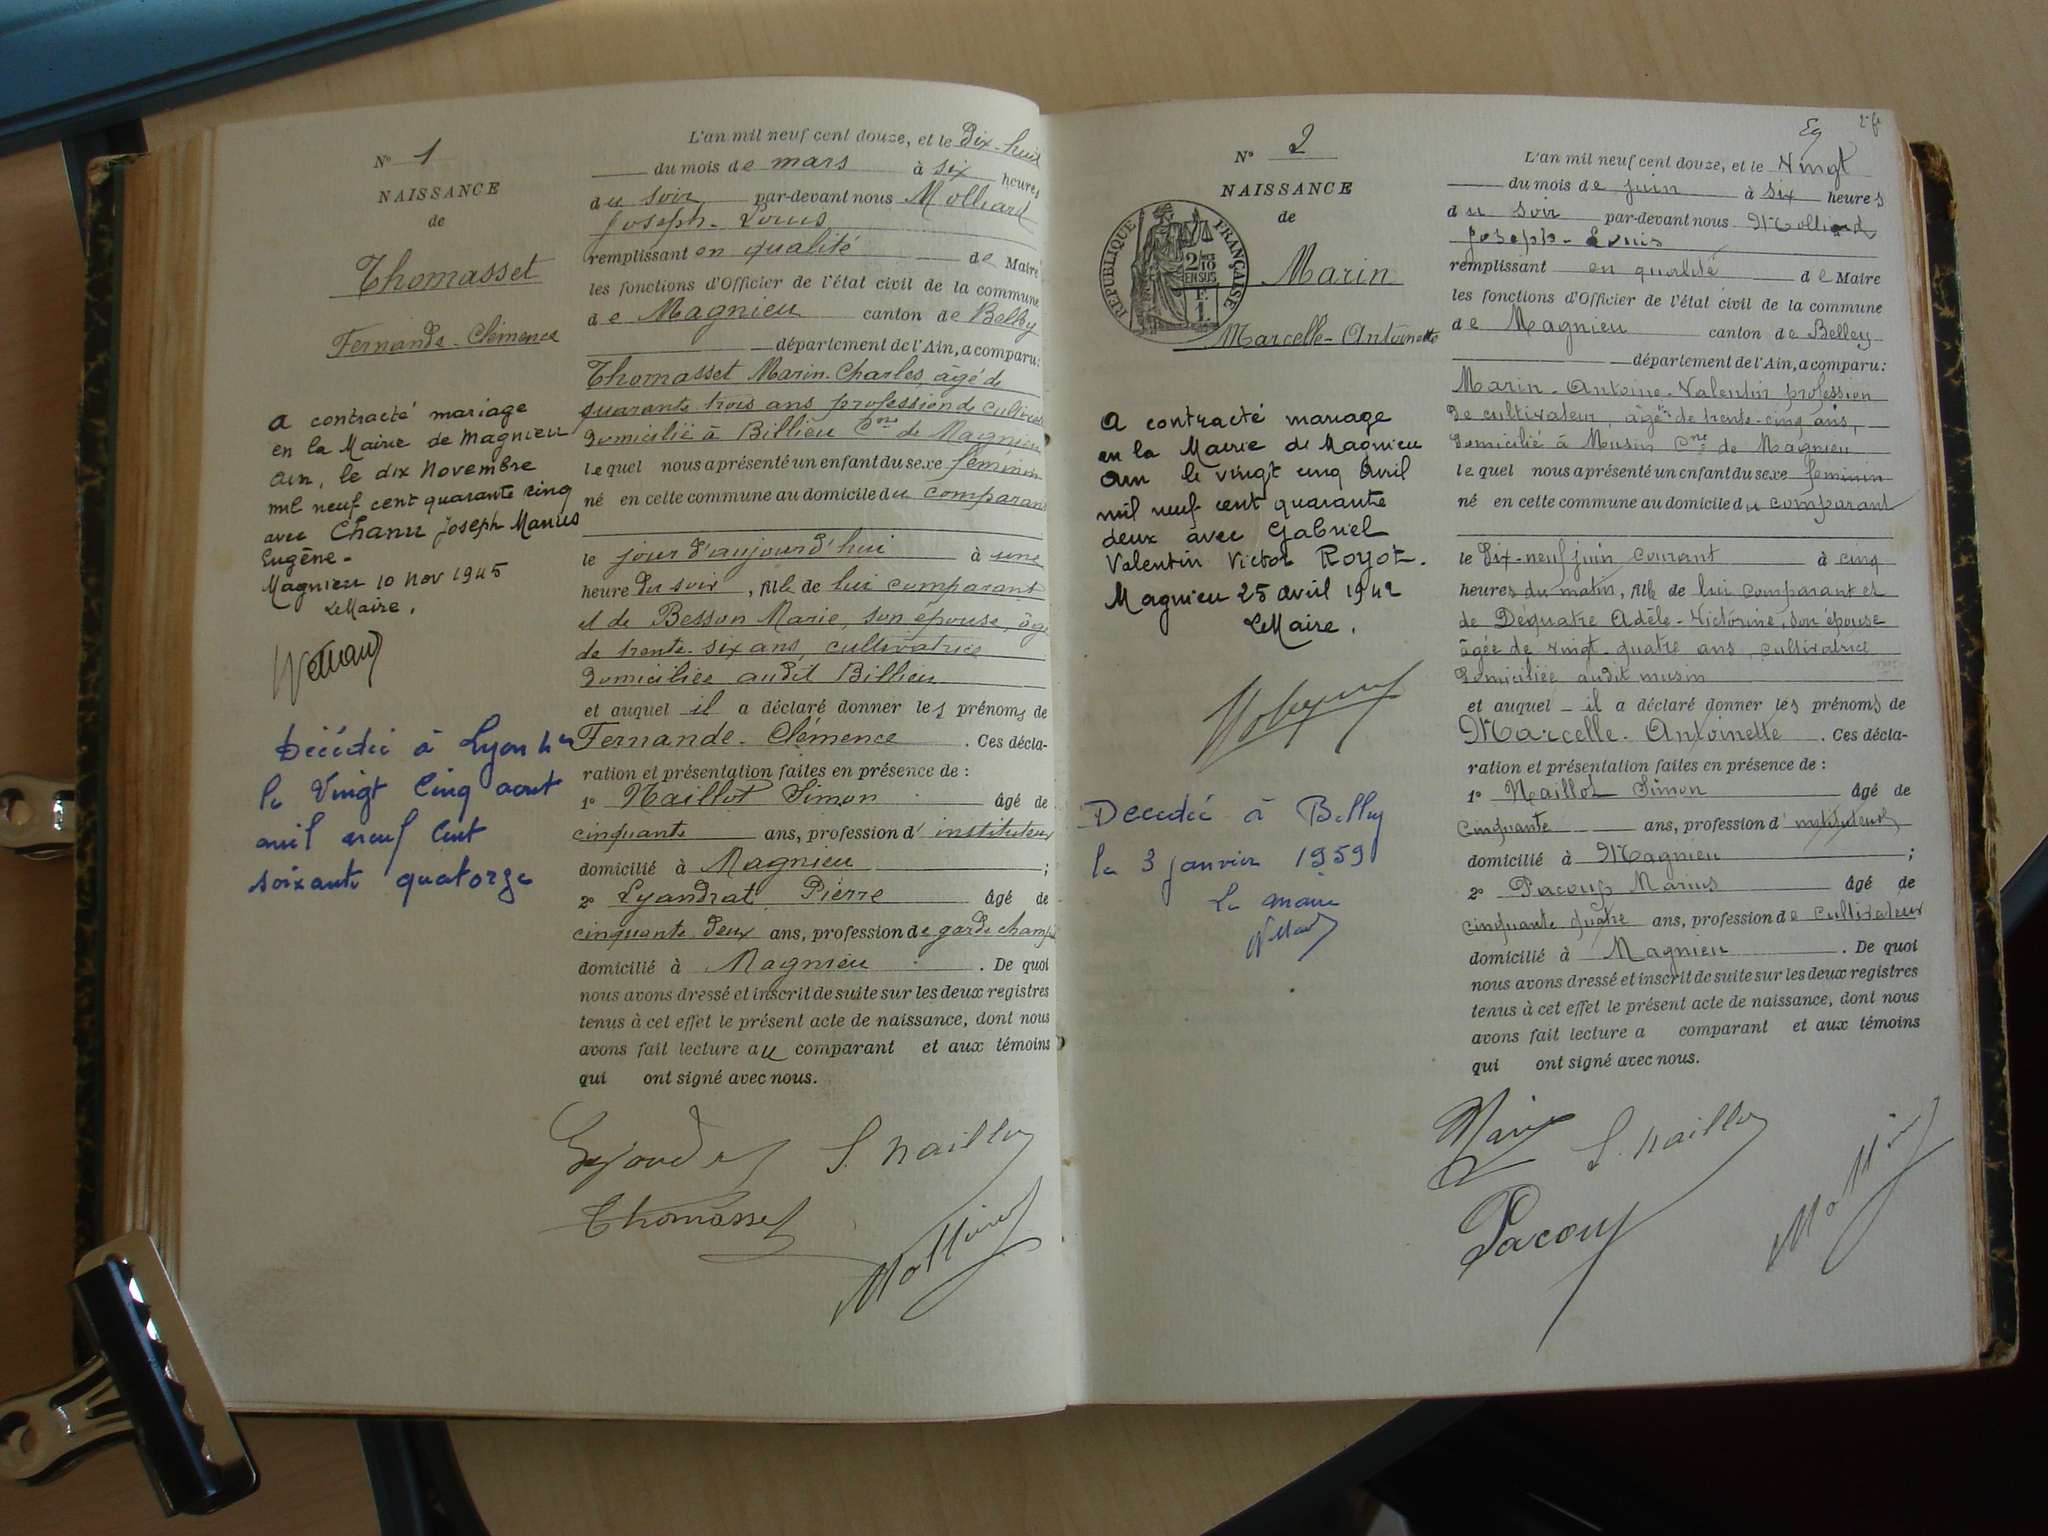 N° 1
NAISSANCE
de
Thomasset
Fernande-Clémence
a contracté mariage
en la Mairie de Magnieu
Ain, le dix Novembre
mil neuf cent quarante cinq
avec Chanu Joseph Marius
Eugène-
Magnieu 10 Nov 1945
Le Maire,
Décédée à Lyon
le Vingt Cinq aout
mil neuf cent
soixante quatorze
L'an mil neuf cent douze, et le Dix-huit
du mois de mars à six heures
du soir par-devant nous Molliard
Joseph-Louis
remplissant en qualité de Maire
les fonctions d'Officier de l'état civil de la commune
de Magnieu canton de Belley
département de l'Ain, a comparu:
Thomasset Marin-Charles, âgé de
quarante trois ans profession de cultivat
domicilié à Billieu Cne de Magnieu
lequel nous a présenté un enfant du sexe féminin
né en cette commune au domicile du comparant
le jour d'aujourd'hui à une
heure du soir, fille de lui comparant
et de Besson Marie, son épouse, âgé
de trente-six ans, cultivatrice
domiciliée audit Billieu
et auquel il a déclaré donner les prénoms de
Fernande-Clémence. Ces décla-
ration et présentation faites en présence de :
1° Naillot Simon âgé de
cinquante ans, profession d'instituteur
domicilié à Magnieu ;
2° Lyandrat Pierre âgé de
cinquante deux ans, profession de garde champ
domicilié à Magnieu. De quoi
nous avons dressé et inscrit de suite sur les deux registres
tenus à cet effet le présent acte de naissance, dont nous
avons fait lecture au comparant et aux témoins
qui ont signé avec nous.
S. Naillot
Thomasset
Molliard
2e f
N° 2
NAISSANCE
de
RÉPUBLIQUE FRANÇAISE
2/10 EN SUS
F. 1.
Marin
Marcelle-Antoinette
a contracté mariage
en la Mairie de Magnieu
Ain le vingt cinq Avril
mil neuf cent quarante
deux avec Gabriel
Valentin Victor Royot.
Magnieu 25 avril 1942
Le Maire,
Decédée à Belley
le 3 janvier 1959
Le maire
L'an mil neuf cent douze, et le vingt
du mois de juin à six heures
du soir par-devant nous Molliard
Joseph-Louis
remplissant en qualité de Maire
les fonctions d'Officier de l'état civil de la commune
de Magnieu canton de Belley
département de l'Ain, a comparu:
Marin-Antoine-Valentin profession
de cultivateur, âgé de trente-cinq ans,
domicilié à Musin Cne de Magnieu
lequel nous a présenté un enfant du sexe féminin
né en cette commune au domicile du comparant
le dix-neuf juin courant à cinq
heures du matin, fille de lui comparant et
de Déquatre Adèle-Victorine, son épouse
âgée de vingt-quatre ans, cultivatrice
domiciliée audit musin
et auquel il a déclaré donner les prénoms de
Marcelle-Antoinette. Ces décla-
ration et présentation faites en présence de :
1° Naillot Simon âgé de
Cinquante ans, profession d'instituteur
domicilié à Magnieu ;
2° Pacoup Marius âgé de
cinquante quatre ans, profession de cultivateur
domicilié à Magnieu. De quoi
nous avons dressé et inscrit de suite sur les deux registres
tenus à cet effet le présent acte de naissance, dont nous
avons fait lecture a comparant et aux témoins
qui ont signé avec nous.
Marin
S. Naillot
Pacoup
Molliard